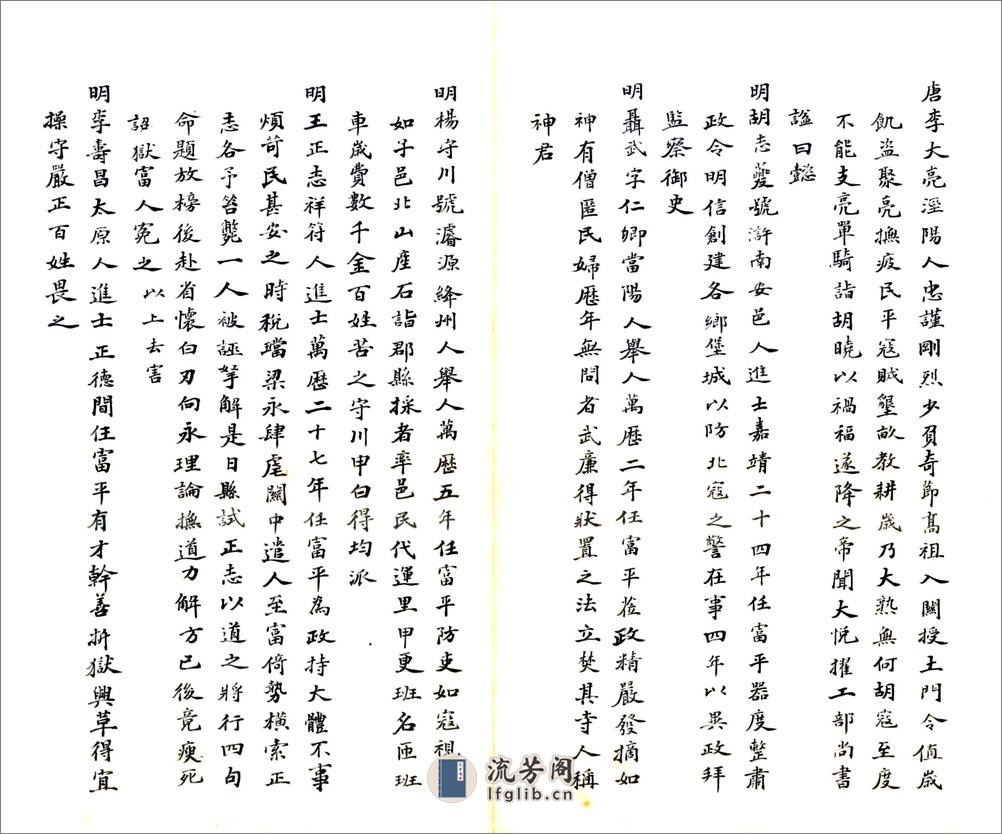 唐李大亮涇陽人忠謹剛烈少負奇節髙祖入關授土門令值歲
飢盜聚亮撫疲民平寇賊墾畝教耕歲乃大熟無何胡寇至度
不能支亮單騎詣胡曉以禍福遂降之帝聞大悅擢工部尚書
謚曰懿
明胡志夔號滸南安邑人進士嘉靖二十四年任富平器度整肅
政令明信創建各鄉堡城以防北寇之警在事四年以異政拜
監察御史
明聶武字仁卿當陽人舉人萬歷二年任富平莅政精嚴發摘如
神有僧匿民婦歷年無問者武廉得狀置之法立焚其寺人稱
神君
明楊守川號濬源絳州人舉人萬歷五年任富平防吏如寇視
如子邑北山產石詣郡縣採者率邑民代運里甲更班名匝班
車歲費數千金百姓苦之守川申白得均派
明王正志祥符人進士萬歷二十七年任富平為政持大體不事
煩苛民甚安之時稅璫梁永肆虐關中遣人至富倚勢橫索正
志各予笞斃一人被誣拏解是日縣試正志以道之將行四句
命題放榜後赴省懷白刃向永理論撫道力解方已後竟瘐死
詔獄富人冤之以上去害
明李壽昌太原人進士正德間任富平有才幹善折獄興革得宜
操守嚴正百姓畏之
流芳阁
lfglib.cn